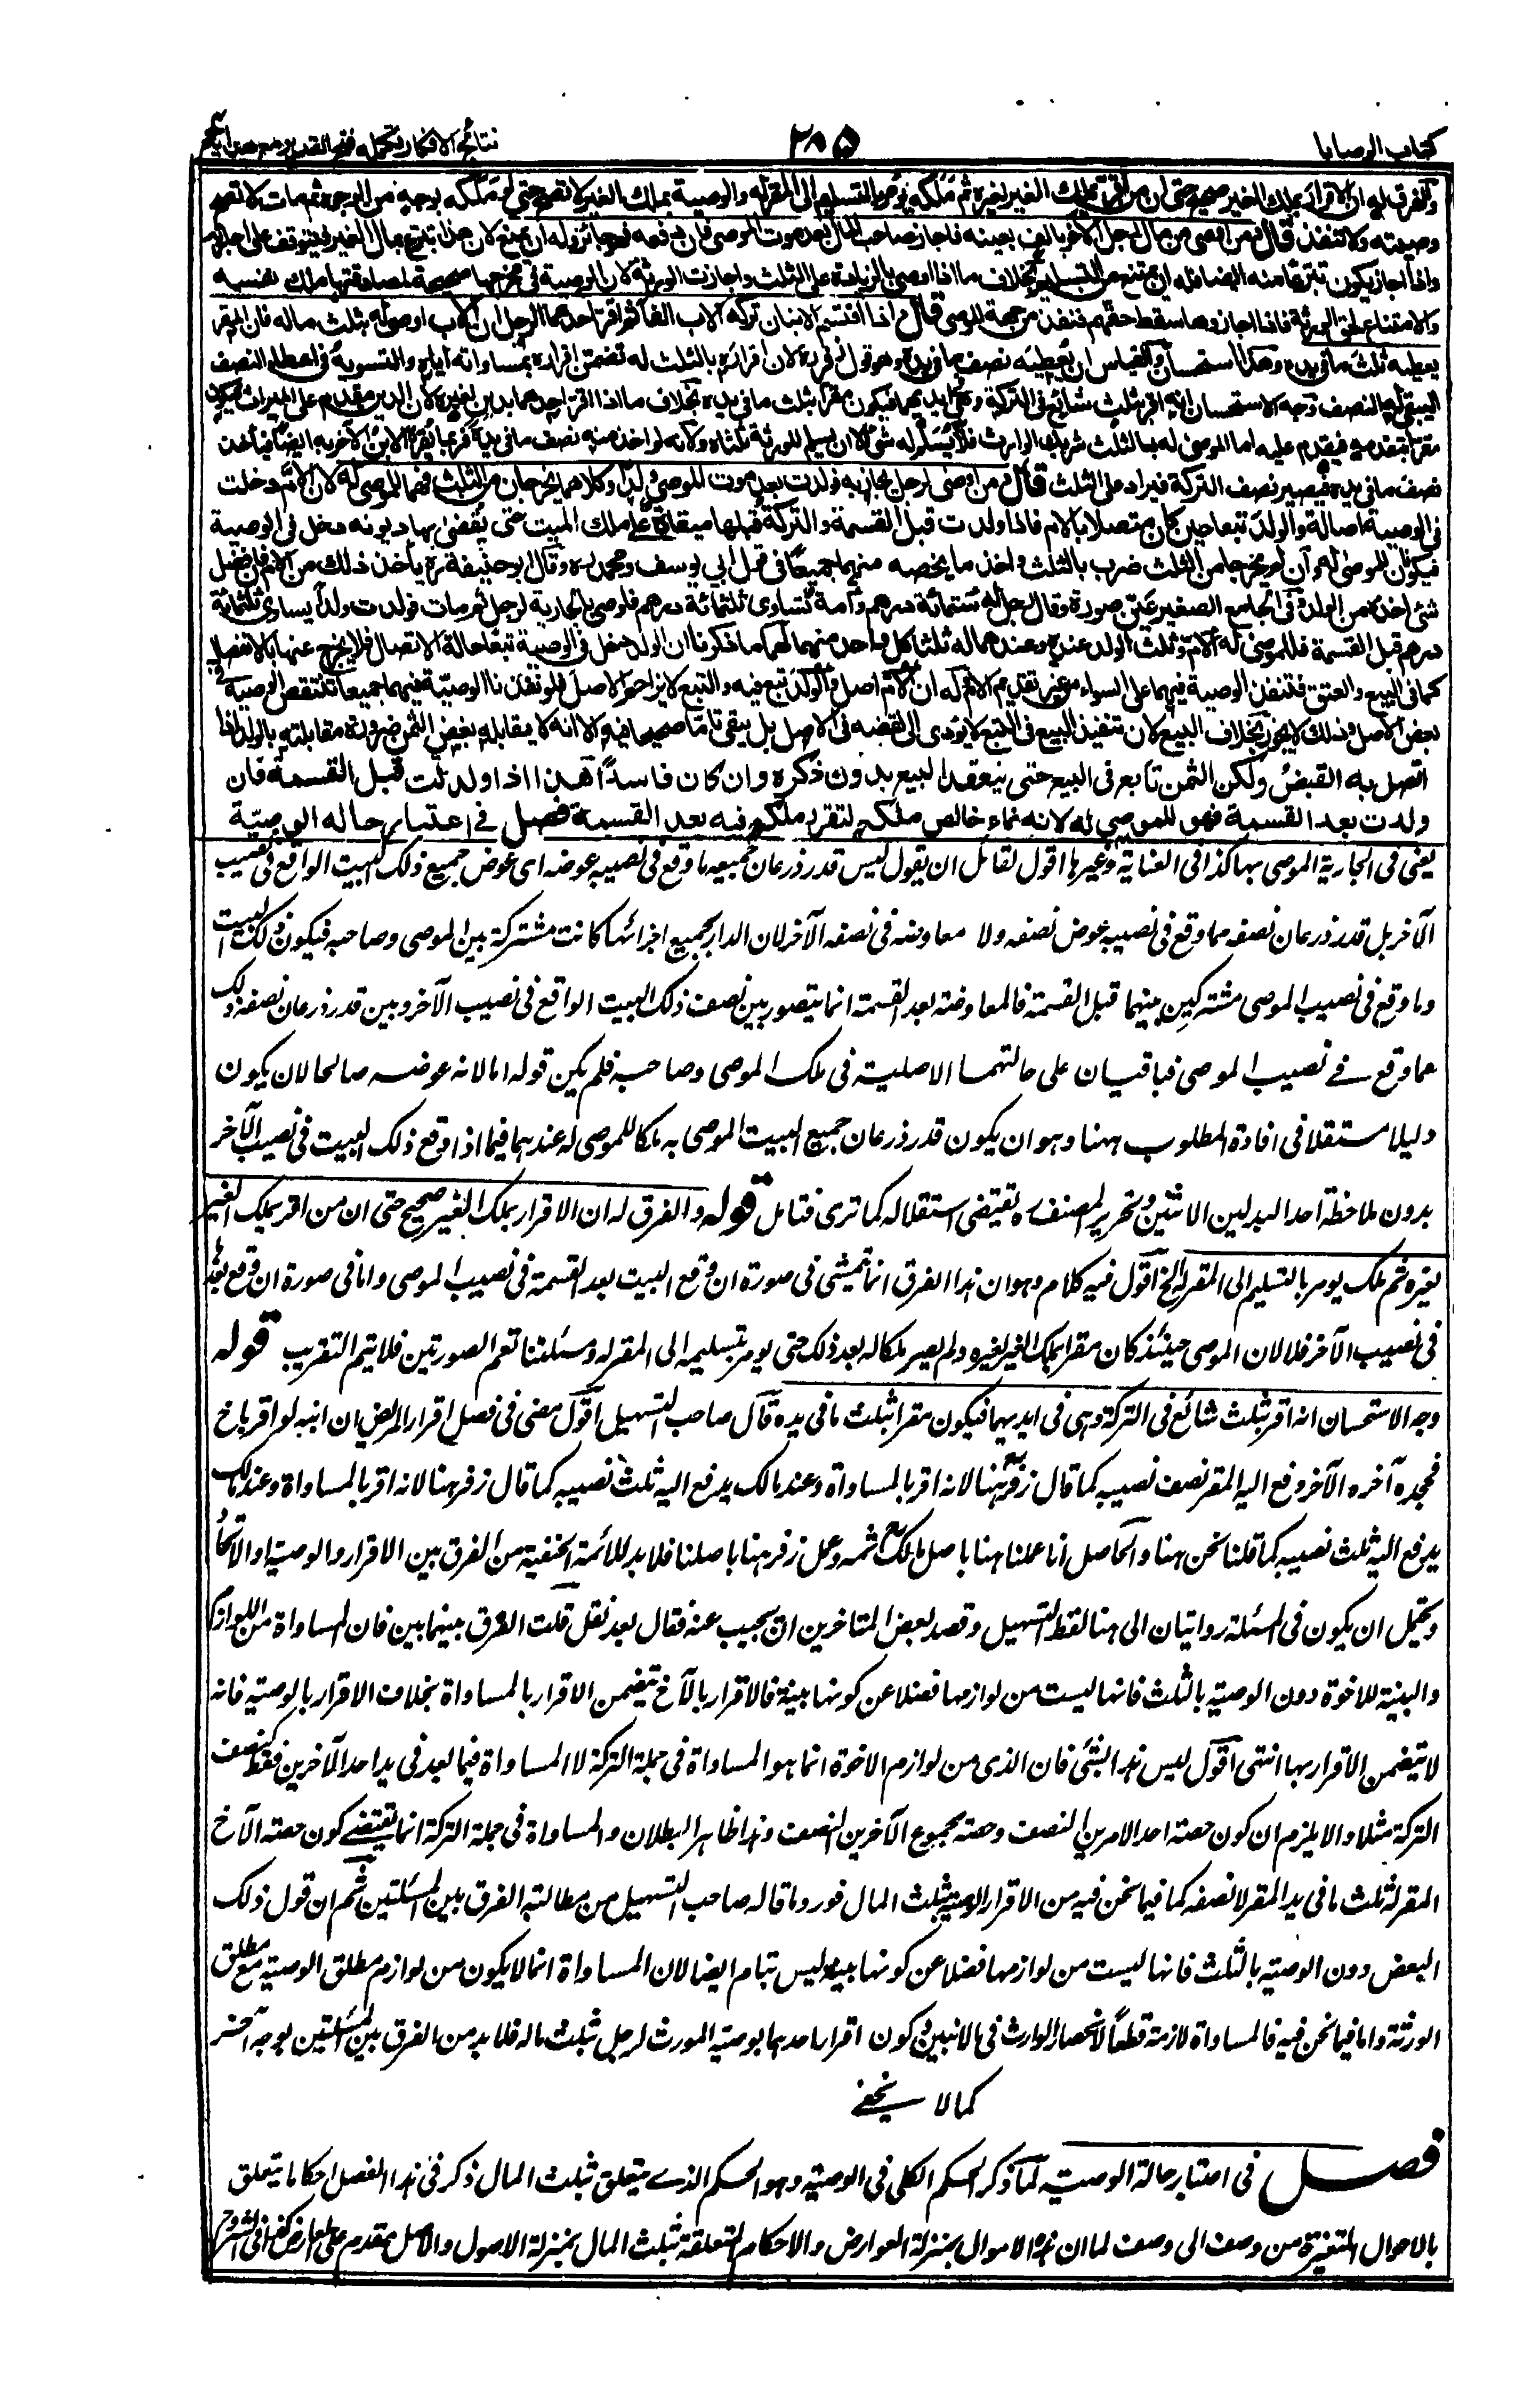 كتاب الوصايا
٣٨٥
نتائج الافكار تكملة فتح القدير مع هداية
والفرق له ان الاقرار بملك الغير صحيح حتى ان من اقر بملك الغير لغيره ثم ملكه يؤمر بالتسليم الى المقر له والوصية بملك الغير لا تصح حتى لو ملكه بوجه من الوجوه ثم مات لا تصح
وصيته ولا تنفذ قال ومن اوصى من مال رجل لاخر بالف بعينه فاجاز صاحب المال بعد موت الموصى فان دفعه فهو جائز وله ان يمنع لان هذا تبرع بمال الغير فيتوقف على اجازته
واذا اجاز يكون تبرعا منه ايضا فله ان يمتنع من التسليم بخلاف ما اذا اوصى بالزيادة على الثلث واجازت الورثة لان الوصية فى مخرجها صحيحة لمصادفتها ملك نفسه
والامتناع لحق الورثة فاذا اجازوها سقط حقهم فتنفذ من جهة الموصى قال واذا اقتسم الابنان تركة الاب الفا ثم اقر احدهما لرجل ان الاب اوصى له بثلث ماله فان المقر
يعطيه ثلث ما فى يده وهذا استحسان والقياس ان يعطيه نصف ما فى يده وهو قول زفر ره لان اقراره بالثلث له تضمن اقراره بمساواته اياه والتسوية فى اعطاء النصف
ليبقى له النصف وجه الاستحسان انه اقر بثلث شائع فى التركة وهى فى ايديهما فيكون مقرا بثلث ما فى يده بخلاف ما اذا اقر احدهما بدين لغيره لان الدين مقدم على الميراث فيكون
مقرا بتقدمه فيقدم عليه اما الموصى له بالثلث شريك الوارث فلا يسلم له شئ الا ان يسلم للورثة مثلاه ولانه لو اخذ منه نصف ما فى يده فربما يقر الابن الآخر به ايضا فيأخذ
نصف ما فى يده فيصير نصف التركة فيزاد على الثلث قال ومن اوصى لرجل بجارية فولدت بعد موت الموصى ولدا وكلاهما يخرجان من الثلث فهما للموصى له لان الام دخلت
فى الوصية اصالة والولد تبعا حين كان متصلا بالام فاذا ولدت قبل القسمة والتركة قبلها مبقاة على ملك الميت حتى يقضى بها ديونه دخل فى الوصية
فيكونان للموصى له وان لم يخرجا من الثلث ضرب بالثلث واخذ ما يخصه منهما جميعا فى قول ابى يوسف ومحمد ره وقال ابو حنيفة ره يأخذ ذلك من الام فان فضل
شئ اخذه من الولد وفى الجامع الصغير عين صورة وقال رجل له ستمائة درهم وأمة تساوى ثلثمائة درهم فاوصى بالجارية لرجل ثم مات فولدت ولدا يساوى ثلثمائة
درهم قبل القسمة فللموصى له الام وثلث الولد عنده وعندهما له ثلثا كل واحد منهما لهما ما ذكرنا ان الولد دخل فى الوصية تبعا حالة الاتصال فلا يخرج عنها بالانفصال
كما فى البيع والعتق فتنفذ الوصية فيهما على السواء من غير تقديم الام وله ان الام اصل والولد تبع فيه والتبع لا يزاحم الاصل فلو نفذنا الوصية فيهما جميعا تنتقض الوصية فى
بعض الاصل وذلك لا يجوز بخلاف البيع لان تنفيذ البيع فى التبع لا يؤدى الى نقضه فى الاصل بل يبقى تاما صحيحا فيه الا انه لا يقابله بعض الثمن ضرورة مقابلته بالولد اذا
اتصل به القبض ولكن الثمن تابع فى البيع حتى ينعقد البيع بدون ذكره وان كان فاسدا هذا اذا ولدت قبل القسمة فان
ولدت بعد القسمة فهو للموصى له لانه نماء خالص ملكه لتقرر ملكه فيه بعد القسمة فصل فى اعتبار حالة الوصية
يعنى فى الجارية الموصى بها كذا فى العناية وغيرها اقول لقائل ان يقول ليس قدر ذرعان جميعه ما وقع فى نصيبه عوضه اى عوض جميع ذلك البيت الواقع فى نصيب
الآخر بل قدر ذرعان نصفه مما وقع فى نصيبه عوض نصفه ولا معاوضة فى نصفه الآخر لان الدار بجميع اجزائها كانت مشتركة بين الموصى وصاحبه فيكون ذلك البيت
وما وقع فى نصيب الموصى مشتركين بينهما قبل القسمة فالمعاوضة بعد القسمة انما يتصور بين نصف ذلك البيت الواقع فى نصيب الآخر وبين قدر ذرعان نصفه ذلك
مما وقع فى نصيب الموصى فباقيان على حالتهما الاصلية فى ملك الموصى وصاحبه فلم يكن قوله اما لانه عوضه صالحا لان يكون
دليلا مستقلا فى افادة المطلوب ههنا وهو ان يكون قدر ذرعان جميع البيت الموصى به ملكا للموصى له عندهما فيما اذا وقع ذلك البيت فى نصيب الآخر
بدون ملاحظة احد البدلين الاثنين وتحرير المصنف ره تقتضى استقلاله كما ترى فتامل قوله والفرق له ان الاقرار بملك الغير صحيح حتى ان من اقر بملك الغير
لغيره ثم ملك يومر بالتسليم الى المقر له الخ اقول فيه كلام وهو ان هذا الفرق انما يتمشى فى صورة ان وقع البيت بعد القسمة فى نصيب الموصى واما فى صورة ان وقع بعدها
فى نصيب الآخر فلا لان الموصى حينئذ كان مقرا بملك الغير لغيره ولم يصر ملكا له بعد ذلك حتى يومر بتسليمه الى المقر له ومسئلتنا تعم الصورتين فلا يتم التقريب قوله
وجه الاستحسان انه اقر بثلث شائع فى التركة وهى فى ايديهما فيكون مقرا بثلث ما فى يده قال صاحب التسهيل اقول مضى فى فصل اقرار المريض ان ابنه لو اقر باخ
فجحده آخره الآخر دفع اليه المقر نصف نصيبه كما قال زفر ره هنا لانه اقر بالمساواة وعند مالك يدفع اليه ثلث نصيبه كما قال زفر هنا لانه اقر بالمساواة وعند مالك
يدفع اليه ثلث نصيبه كما قلنا نحن هنا والحاصل انا عملنا هنا باصل مالك ثمه وعمل زفر هنا باصلنا فلا بد للائمة الحنفية من الفرق بين الاقرار والوصية او الاتحاد
ويحتمل ان يكون فى المسئلة روايتان الى هنا لفظ التسهيل وقصد بعض المتاخرين ان يجيب عنه فقال بعد نقل قلت الفرق بينهما بين فان المساواة من اللوازم
والبينة للاخوة دون الوصية بالثلث فانها ليست من لوازمها فضلا عن كونها بينة فالاقرار بالآخ يتضمن الاقرار بالمساواة بخلاف الاقرار بالوصية فانه
لا يتضمن الاقرار بها انتهى اقول ليس هذا بشئ فان الذى من لوازم الاخوة انما هو المساواة فى جملة التركة لا المساواة فيما بعد فى يد احد الآخرين فقط كنصف
التركة مثلا والا يلزم ان كون حصته احد الامرين النصف وحصته مجموع الآخرين النصف وهذا ظاهر البطلان والمساواة فى جملة التركة انما يقتضى كون حصته الآخ
المقر له ثلث ما فى يد المقر لا نصفه كما فيما نحن فيه من الاقرار بالوصية بثلث المال فورد ما قاله صاحب التسهيل من مطالبته الفرق بين المسئلتين ثم ان قول ذلك
البعض دون الوصية بالثلث فانها ليست من لوازمها فضلا عن كونها بينة ليس بتام ايضا لان المساواة انما لا يكون من لوازم مطلق الوصية مع مطلق
الورثة واما فيما نحن فيه فالمساواة لازمة قطعا لانحصار الوارث فى الابنين فى كون اقرار احدهما بوصية المورث لرجل بثلث ماله فلا بد من الفرق بين المسئلتين بوجه آخر
كما لا يخفى
فصل فى اعتبار حالة الوصية لما ذكر الحكم الكلى فى الوصية وهو الحكم الذى يتعلق بثلث المال ذكر فى هذا الفصل احكاما يتعلق
بالاحوال المتغيرة من وصف الى وصف لما ان هذه الاموال بمنزلة العوارض والاحكام المتعلقة بثلث المال بمنزلة الاصول والاصل مقدم على العارض كذا فى الشروح